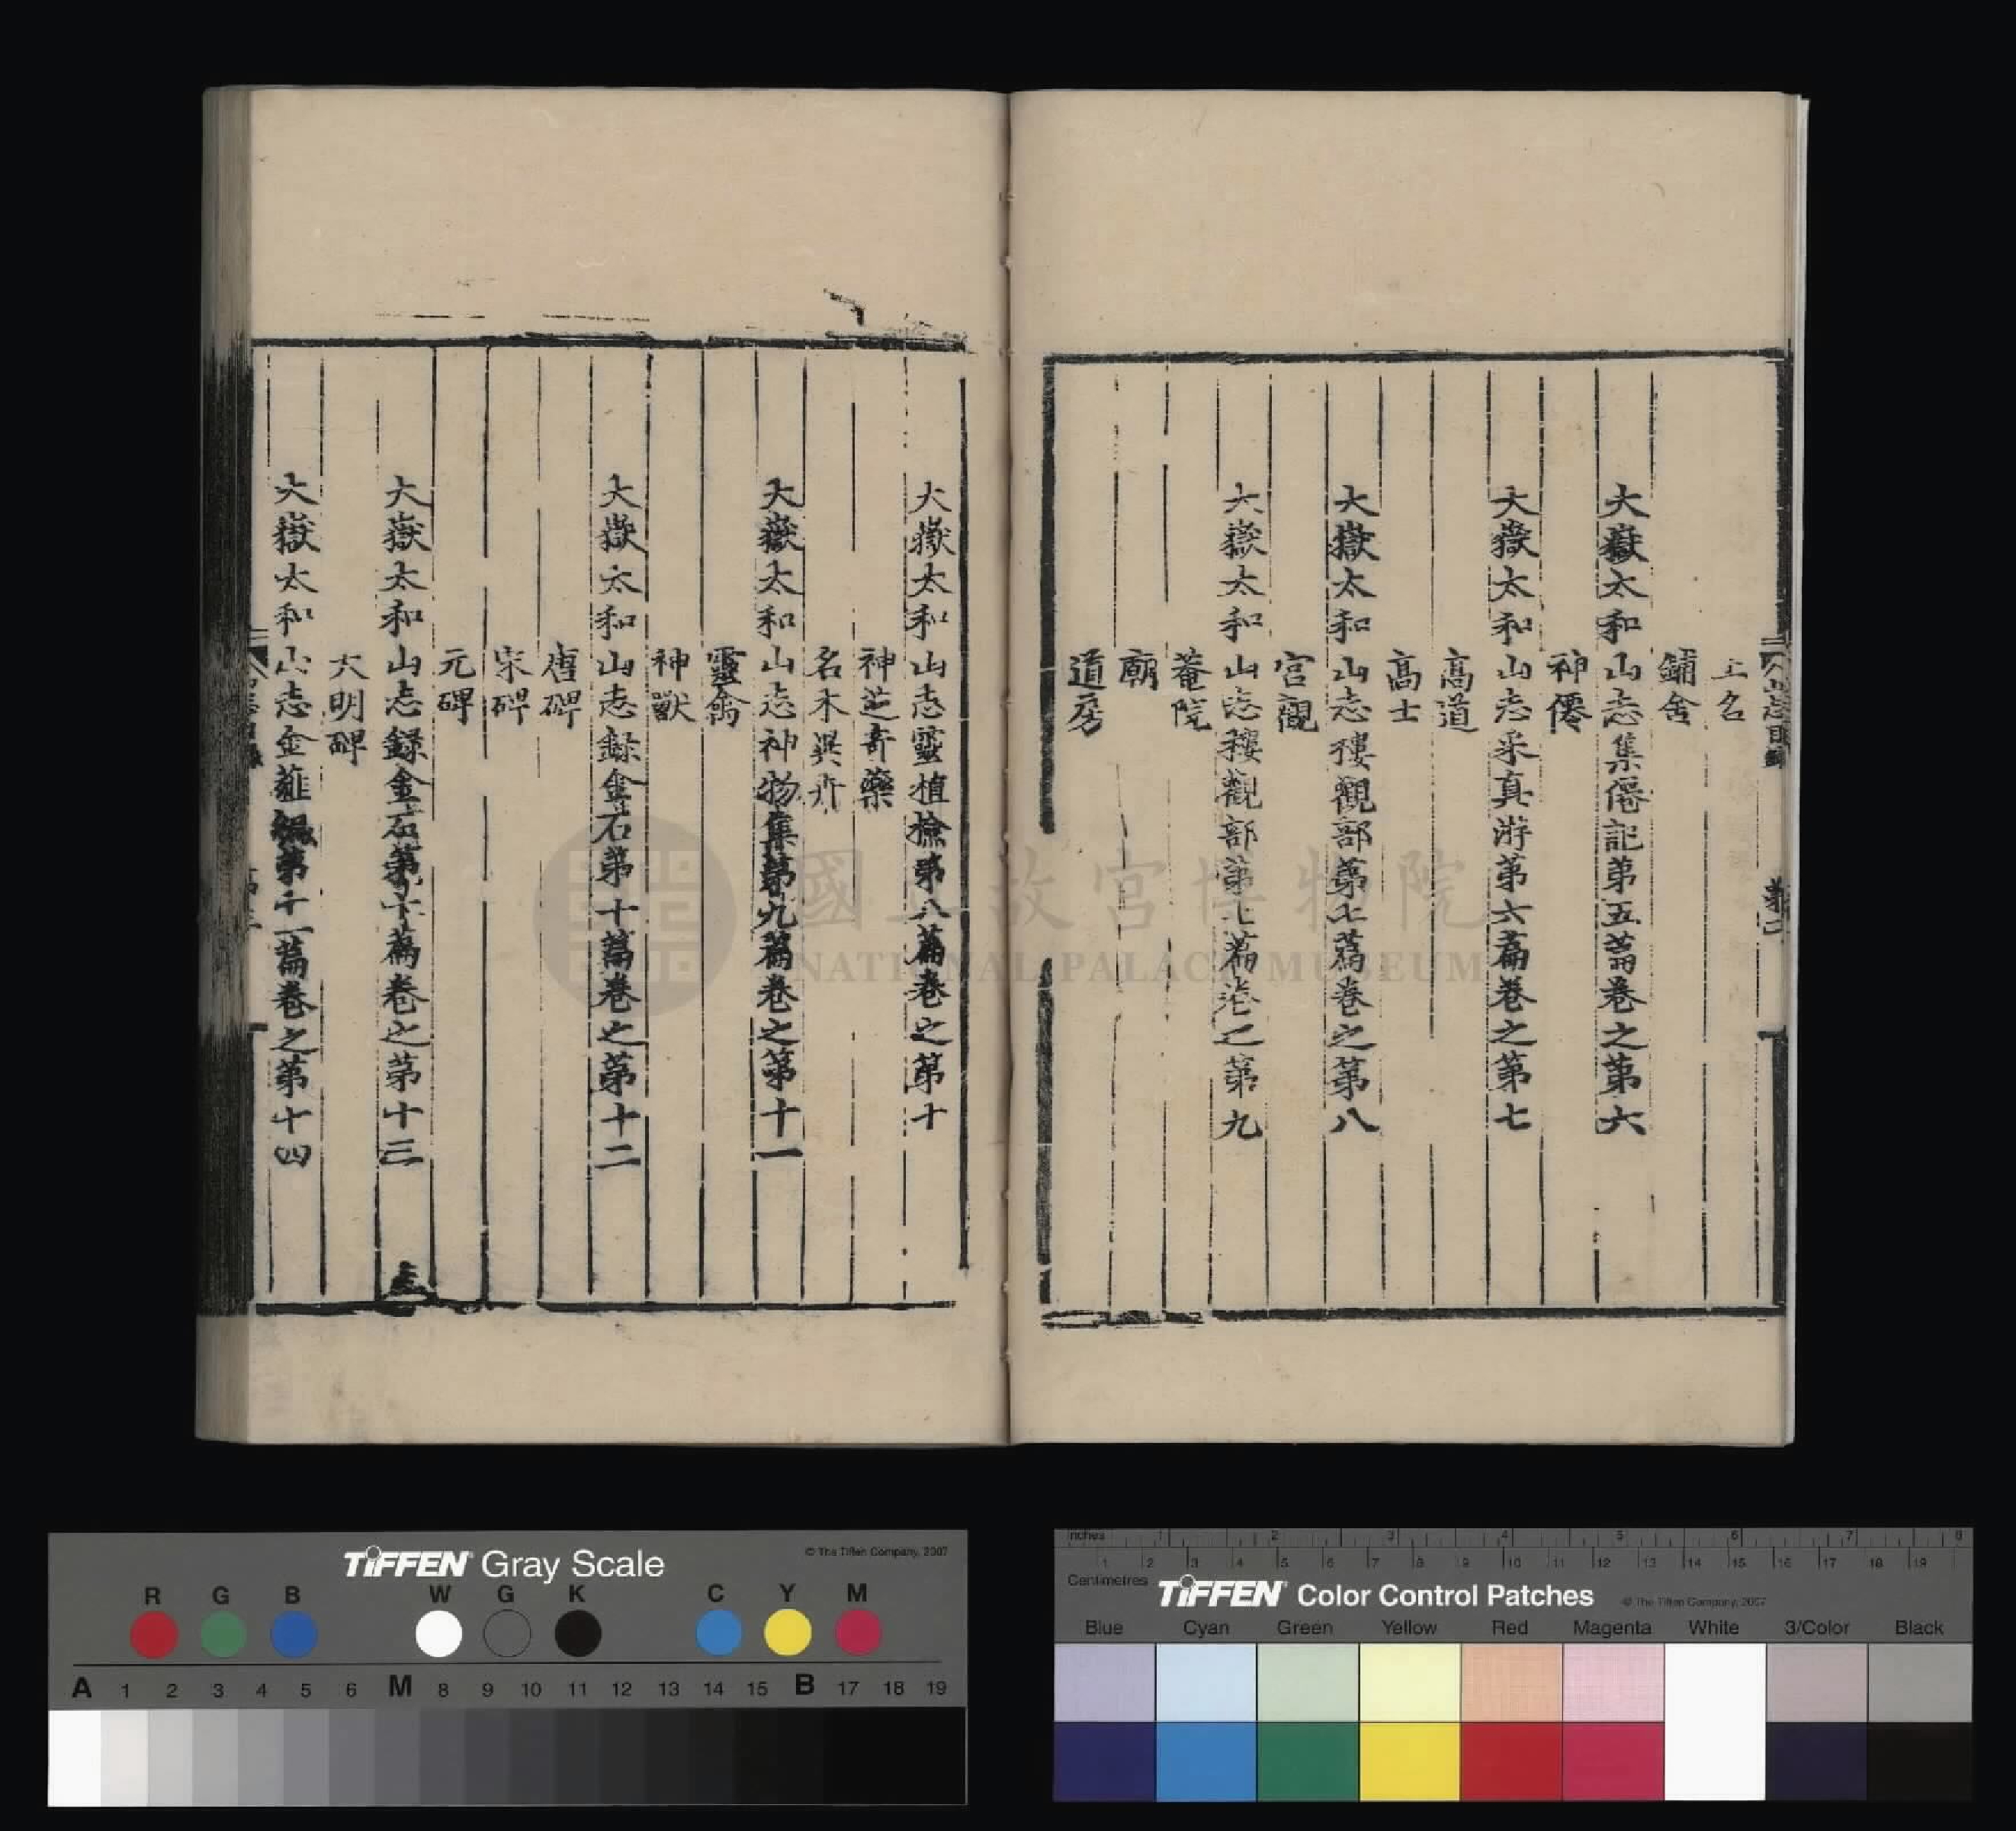 名
鋪舍
大嶽太和山志集僊記第五萹卷之第六
神僊
大嶽太和山志采真游第六萹卷之第七
高道
高士
大嶽太和山志樓觀部第七萹卷之第八
宮觀
大嶽太和山志樓觀部第七萹卷之第九
菴院
廟
道房
大嶽太和山志靈植撿第八萹卷之第十
神芝奇藥
名木異卉
大嶽太和山志神物集第九萹卷之第十一
靈禽
神獸
大嶽太和山志錄金石第十萹卷之第十二
唐碑
宋碑
元碑
大嶽太和山志錄金石第十萹卷之第十三
大明碑
大嶽太和山志金薤編第十一萹卷之第十四
國立故宮博物院
NATIONAL PALACE MUSEUM
TIFFEN Gray Scale
© The Tiffen Company, 2007
R G B W G K C Y M
A 1 2 3 4 5 6 M 8 9 10 11 12 13 14 15 B 17 18 19
Inches 1 2 3 4 5 6 7 8
1 2 3 4 5 6 7 8 9 10 11 12 13 14 15 16 17 18 19
Centimetres
TIFFEN Color Control Patches
© The Tiffen Company, 2007
Blue Cyan Green Yellow Red Magenta White 3/Color Black